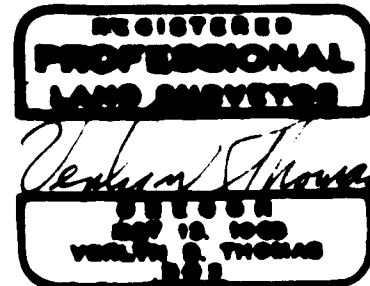 REGISTERED
PROFESSIONAL
LAND SURVEYOR
Verlyn Thomas
OREGON
VERLYN D. THOMAS